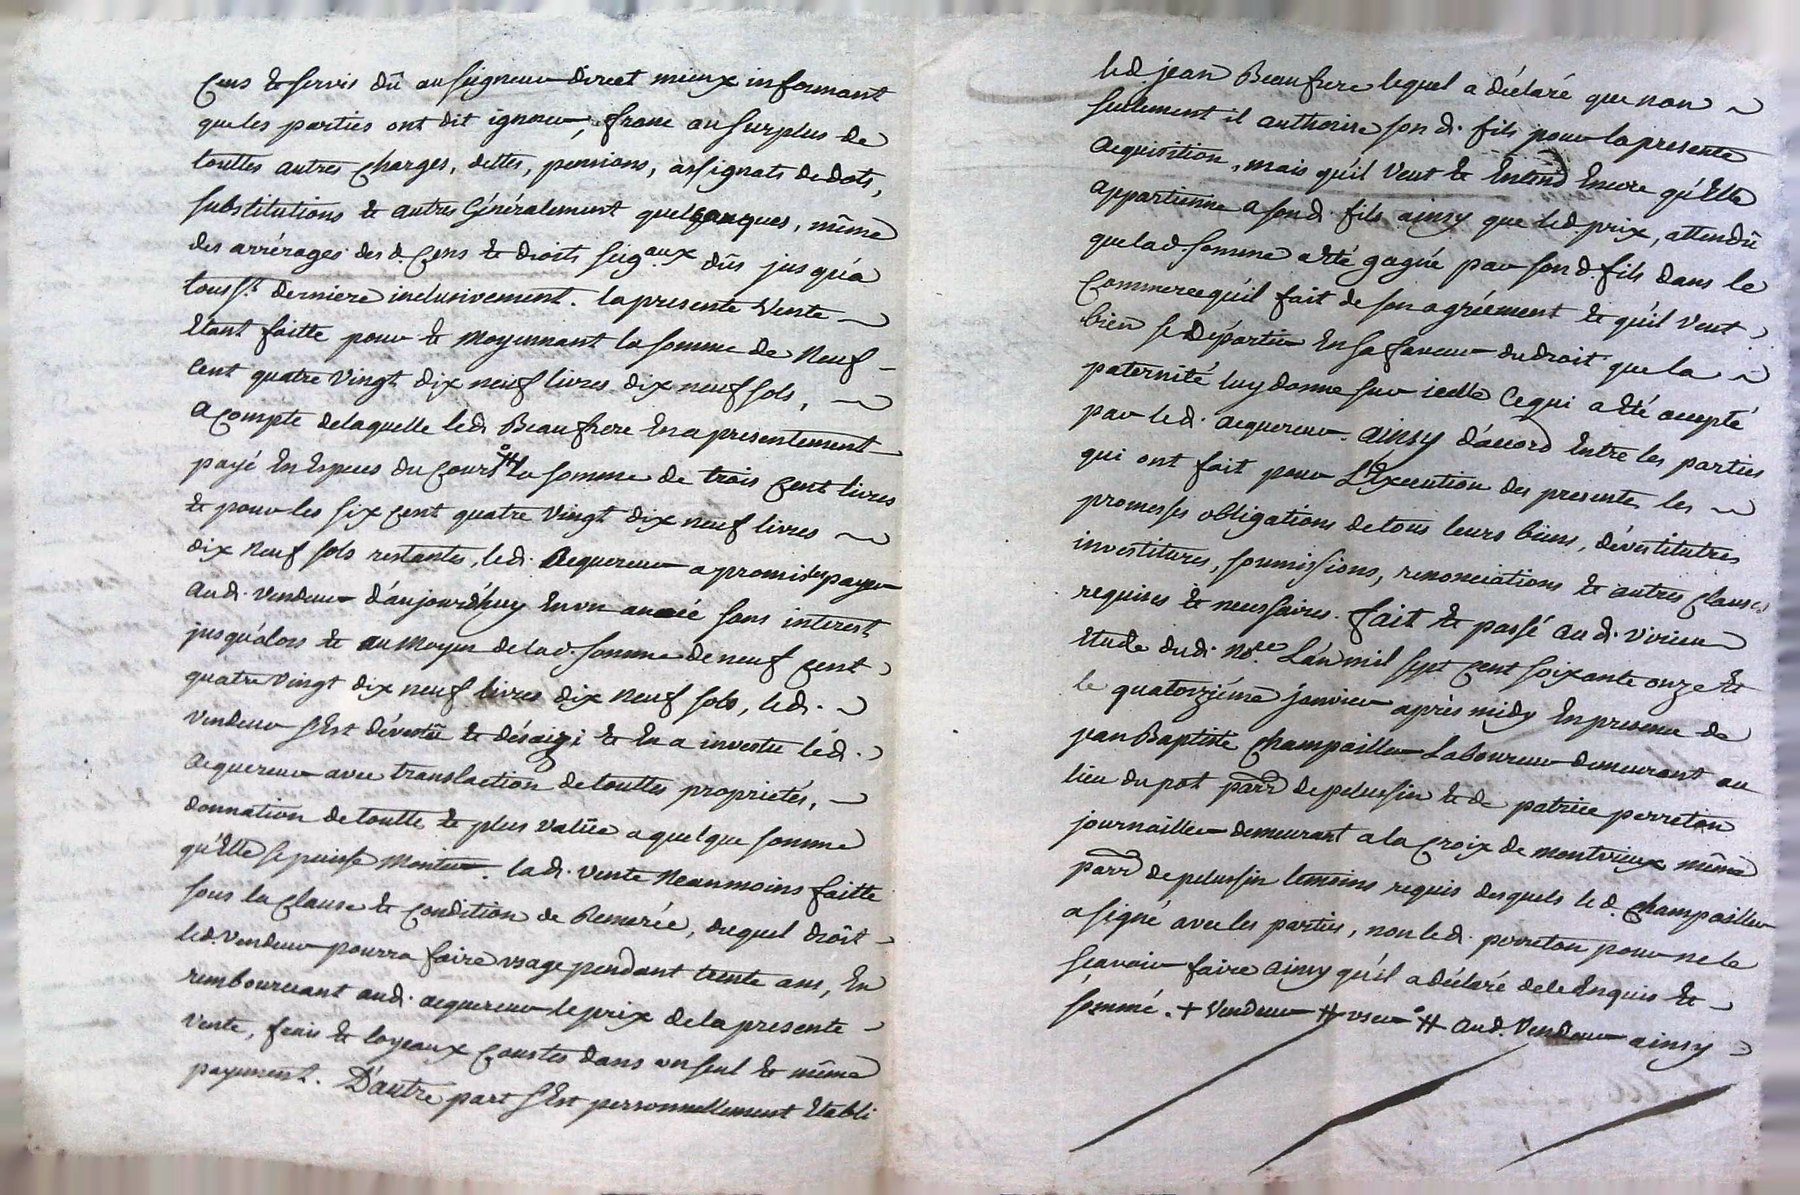 Cens & servis dû au seigneur direct mieux informant
que les parties ont dit ignorer, franc au surplus de
touttes autres charges, dettes, pensions, assignats de dots,
substitutions & autres Généralement quelconques, même
des arrérages des d. Cens & droits seig.aux dûs jusqu'a
touss.ts derniere inclusivement. la presente Vente
Etant faitte pour & Moyennant la somme de Neuf
Cent quatre Vingt dix neuf livres dix neuf sols,
a compte de laquelle led. Beaufrere En a presentement
payé En Especes du cours # la somme de trois Cent livres
& pour les six Cent quatre Vingt dix neuf livres
dix Neuf sols restantes, led. acquereur a promis les payer
au d. Vendeur d'aujourd'huy En un année sans interest
jusqu'alors & au Moyen de la d. somme de neuf Cent
quatre Vingt dix neuf livres dix Neuf sols, led.
Vendeur s'Est dévestû & désaisi & En a investu léd.
acquereur avec translaction de touttes proprietés,
donnation de toutte & plus Valüe a quelque somme
qu'Elle se puisse Monter. la d. Vente Neanmoins faitte
sous la clause & Condition de Remerée, duquel droit
led. Vendeur pourra faire usage pendant trente ans, En
remboursant au d. acquereur le prix de la presente
Vente, frais & loyeaux Coustes dans un seul & même
payement. D'autre part s'Est personnellement Etabli
led. jean Beaufrere lequel a déclaré que non
seulement il authorise son d. fils pour la presente
acquisition, mais qu'il Veut & Entend Encore qu'Elle
appartienne a son d. fils ainsy que led prix, attendû
que la d. somme a été gagné par son d. fils dans le
Commerce qu'il fait de son agréement & qu'il Veut
bien se départir En sa faveur du droit que la
paternité luy donne sur icelle Ce qui a été accepté
par led. acquereur. ainsy d'accord Entre les parties
qui ont fait pour L'Execution des presentes les
promesses obligations de tous leurs biens, dévestitutres
investitures, soumissions, renonciations & autres clauses
requises & necessaires. fait & passé au d. Virieu
Etude du d. No.re L'an mil sept Cent soixante onze &
le quatorziéme janvier après midy En presence de
jean Baptiste Champailler Laboureur demeurant au
lieu du pot parr. de pelussin & de patrice perreton
journaillier demeurant a la Croix de montvieux même
parr. de pelussin temoins requis desquels led. Champailler
a signé avec les parties, non led. perreton pour ne le
sçavoir faire ainsy qu'il a déclaré de ce Enquis &
sommé. + Vendeur # user # aud. Vendeur ainsy